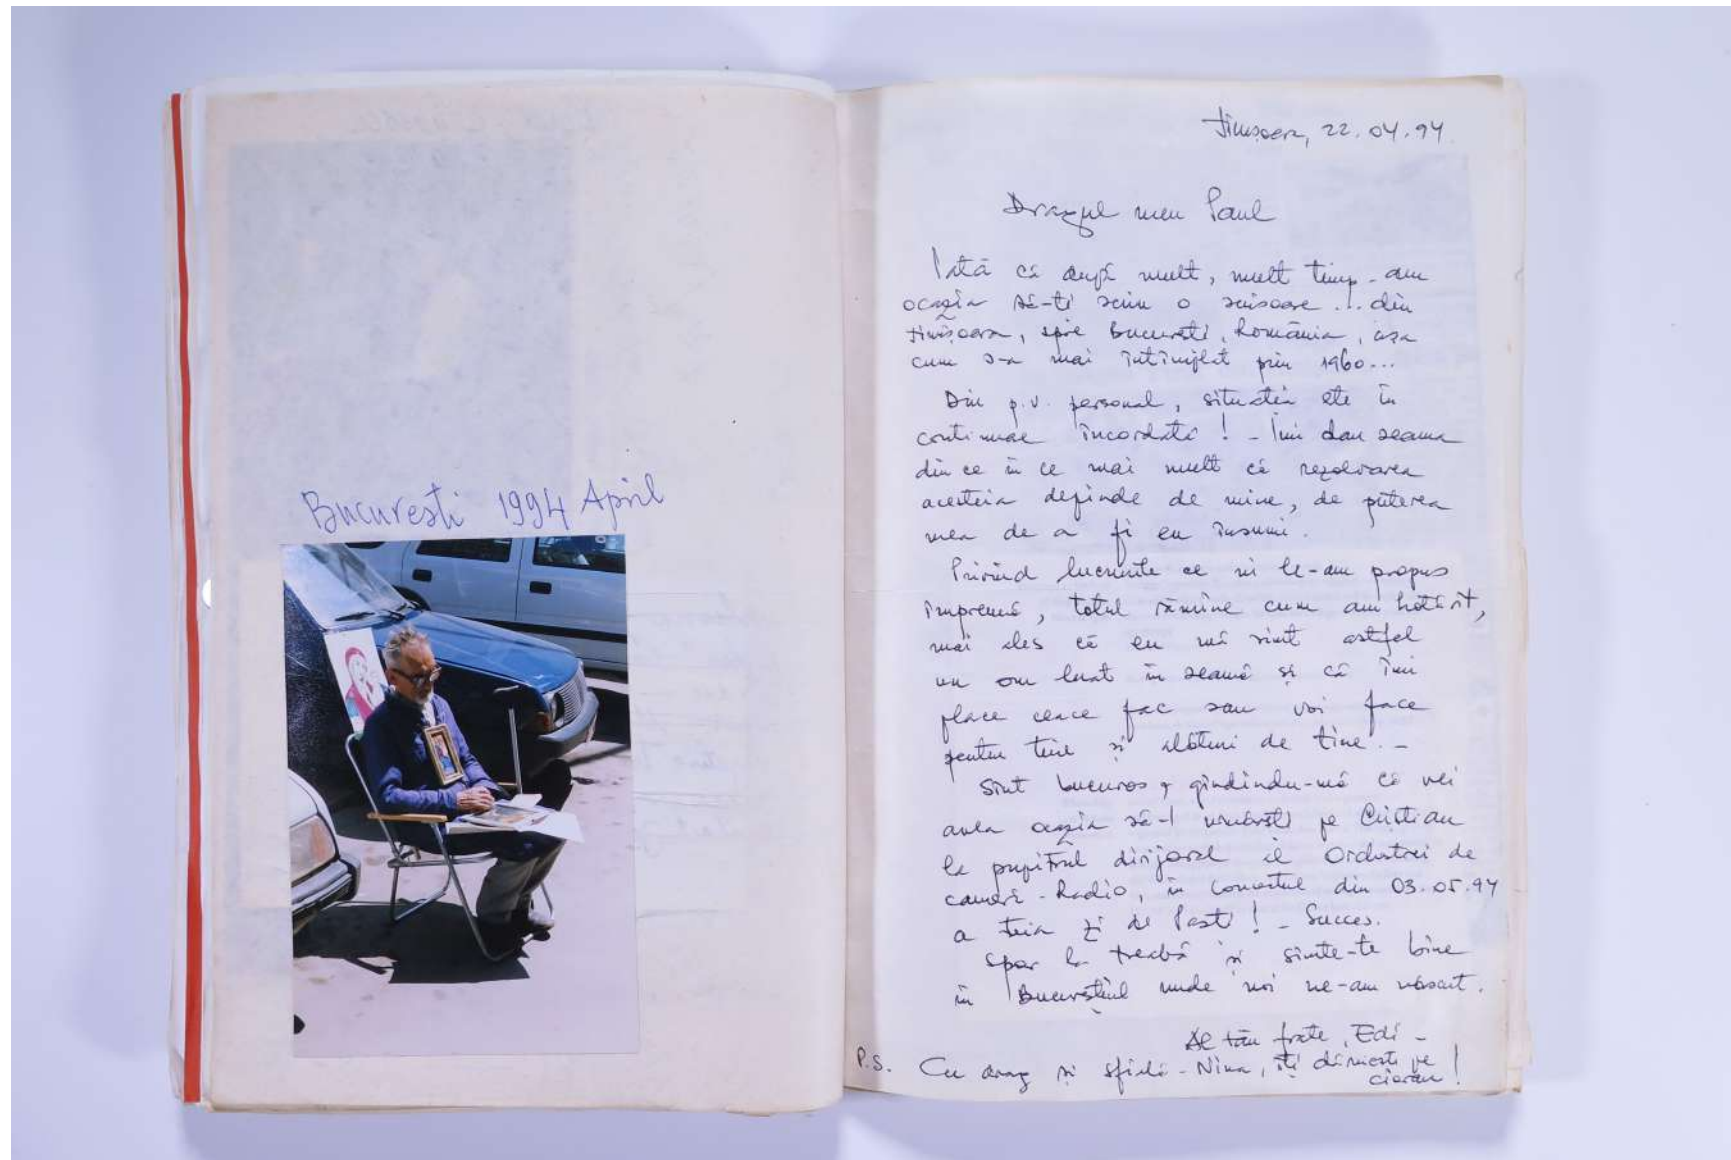 București 1994 April
Timișoara, 22.04.94.
Dragul meu Paul
Iată că după mult, mult timp am
ocazia să-ți scriu o scrisoare ... din
Timișoara, spre București, România, așa
cum s-a mai întîmplat prin 1960...
Din p.v. personal, situația este în
continuare încordată! - Îmi dau seama
din ce în ce mai mult că rezolvarea
acesteia depinde de mine, de puterea
mea de a fi eu însumi.
Privind lucrurile ce ni le-am propus
împreună, totul rămîne cum am hotărît,
mai ales că eu mă simt astfel
un om luat în seamă și că îmi
place ceace fac sau voi face
pentru tine și alături de tine. -
Sînt bucuros, gîndindu-mă că vei
avea ocazia să-l urmărești pe Cristian
la pupitrul dirijoral al Orchestrei de
cameră - Radio, în concertul din 03.05.94
a treia zi de Paști! - Succes.
Spor la treabă și simte-te bine
în Bucureștiul unde noi ne-am născut.
Al tău frate, Edi -
P.S. Cu drag și - Nina, îți dăruiește pe
Cioran!